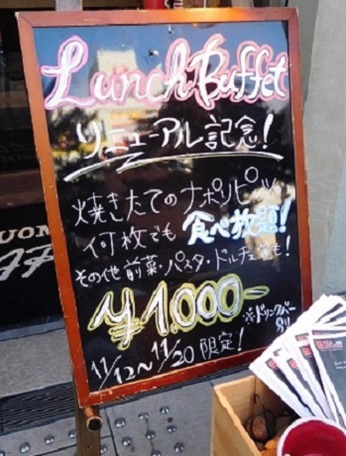 Lunch Buffet
リニューアル記念!
焼きたてのナポリピッツァ
何枚でも 食べ放題!
その他 前菜・パスタ・ドルチェ等も!
¥1,000-
※ドリンクバー
別
11/12~11/20 限定!
UON